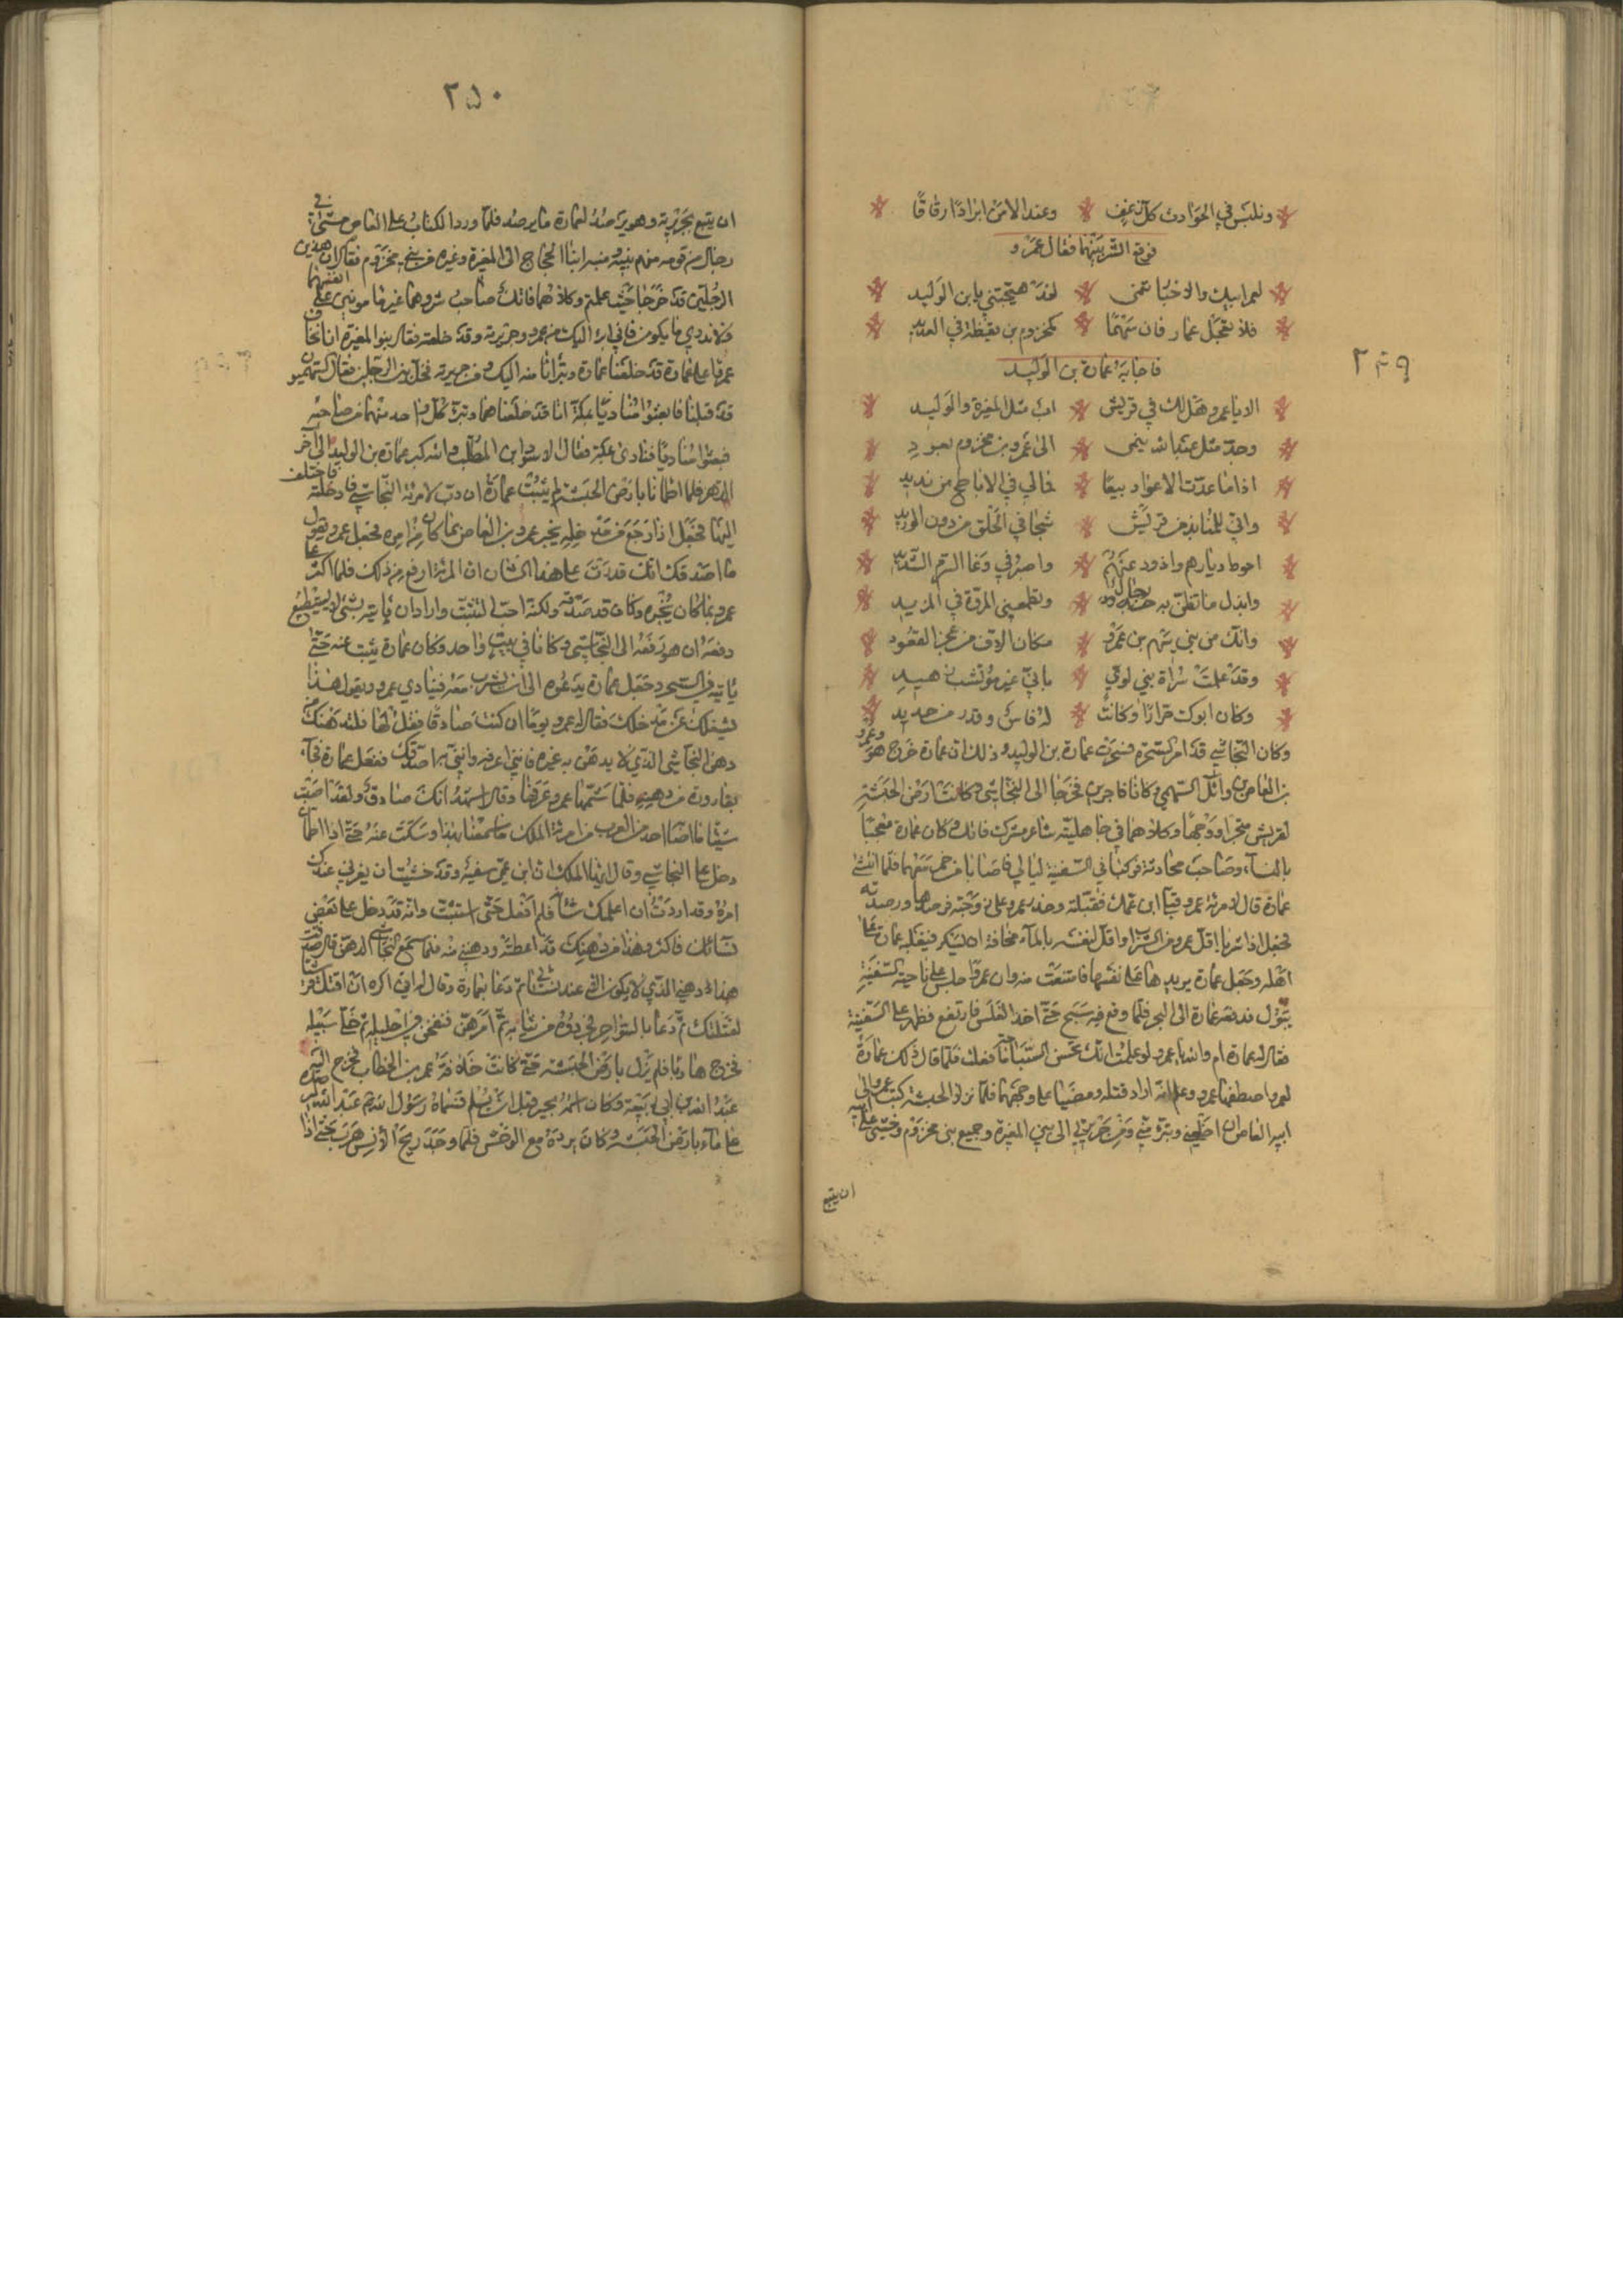 ٢٤٩
ونلبس في الحوادث كل زعف * وعند الامن ابرادا رقاقا
فوقع الشر بينهما فقال عمرو
لعمر ابيك والاخبار تنمى * لقد هيجتني يابن الوليد
فلا تعجل عمار فان سهما * لمخزوم بن يقظة في العديد
فاجابه عمارة بن الوليد
الا يا عمرو هل لك في قريش * اب مثل المغيرة والوليد
وجد مثل عبد الله ينمى * الى عمرو بن مخزوم بعود
اذا ما عدت الاعواد نبعا * خالي في الاباطح من نديد
واني للمنابذ من قريش * شجا في الحلق من دون الوريد
احوط ديارهم واذود عنهم * واصبر في وغا اليوم الشديد
وابذل ما تظن به رجال * وتطمعني المروة في المزيد
وانك من بني سهم بن عمرو * مكان الردف من عجز القعود
وقد علمت سراة بني لوي * باني غير مؤتشب زهيد
وكان ابوك جزارا وكانت * له فاس وقدر من حديد
وكان النجاشي قد امر السحرة فسحرت عمارة بن الوليد وذلك ان عمارة خرج هو وعمرو
بن العاص بن وائل السهمي وكانا تاجرين فخرجا الى النجاشي وكانت ارض الحبشة
لقريش متجرا ووجها وكلاهما في جاهليته شاعر مشرك فاتك وكان عمارة معجبا
بالنساء وصاحب محادثة فركبا في السفينة ليالي فاصابا من خمر معهما فلما انتشى
عمارة قال لامرئة عمرو قبلي فقال لها عمرو قبلي ابن عمك فقبلته وحذر عمرو على زوجته فرصدها ورصدته
فجعل اذا شربا اقل عمرو من الشراب واقل لنفسه بالماء مخافة ان يسكر فيغلبه عمارة على
اهله وجعل عمارة يريدها على نفسها فامتنعت منه وان عمرا جلس على ناحية السفينة
يبول فدفعه عمارة الى البحر فلما وقع فيه سبح حتى اخذ القلس فارتفع فظهر على السفينة
فقال له عمارة ام والله يا عمرو لو علمت انك تحسن السباحة ما فعلت فلما قال ذلك عمارة
لعمرو اضطغنها عمرو وعلم انه اراد قتله ومضيا على وجههما فلما نزلا الحبشة كتب عمرو الى
ابيه العاص ان اخلعني وتبرء مني ومن جريرتي الى بني المغيرة وجميع بني مخزوم وخشي على ابيه
ان يتبع
٢٥٠
ان يتبع بجريرته وهو يرصد لعمارة ما يرصد فلما ورد الكتاب على العاص مشى في
رجال من قومه منهم نبيه ومنبه ابنا الحجاج الى المغيرة وغيره من بني مخزوم فقال ان هذين
الرجلين قد خرجا حيث علمتم وكلاهما فاتك صاحب شر وهما غير مامونين على انفسهما
ولا ندري ما يكون فاني ابرء اليك من عمرو وجريرته وقد خلعته فقال بنو المغيرة انا نخاف
عمرا على عمارة قد خلعنا عمارة وتبرانا منه اليك ومن جريرته فخل بين الرجلين فقال السهميون
قد قبلنا فابعثوا مناديا بمكة انا قد خلعناهما وتبرء كل واحد منهما من صاحبه
فبعثوا مناديا فنادى بمكة فقال الاسود بن المطلب والله كبر عمارة بن الوليد الى آخر
الدهر فلما اطمانا بارض الحبشة لم يلبث عمارة ان دب لامرئة النجاشي فادخلته فاختلف
اليها فجعل اذا رجع من مدخله يخبر عمرو بن العاص بما كان من امره فجعل عمرو يقول
ما اصدقك انك قدرت على هذا الشان ان المرئة ارفع من ذلك فلما اكثر على
عمرو بما كان يخبره وكان قد صدقه ولكنه احب التثبت واراد ان ياتيه بشيء لا يستطيع
دفعه ان هو رفعه الى النجاشي وكانا في بيت واحد وكان عمارة يبيت عنه حتى
ياتيه في السحر وجعل عمارة يدعوه الى ان يشرب معه فينادي عمرو ويقول هذا
يشغلك عن مدخلك فقال له عمرو يوما ان كنت صادقا فقل لها فلتدهنك من
دهن النجاشي الذي لا يدهن به غيره فانني اعرفه وائتني به اصدقك ففعل عمارة فجاء
بقارورة من دهنه فلما شمها عمرو عرفها وقال اشهد انك صادق ولقد اصبت
شيئا ما اصاب احد من العرب من امرئة الملك ما سمعنا بهذا وسكت عنه حتى اذا اطمان
دخل على النجاشي وقال ايها الملك ان ابن عمي سفيه وقد خشيت ان يعرني عندك
امره وقد اردت ان اعلمك شانه فلم افعل حتى استثبت وانه قد دخل على بعض
نسائك فاكثر وهذا من دهنك قد اعطته ودهنني منه فلما شم النجاشي الدهن قال صدقت
هذا دهني الذي لا يكون الا عند نسائي ثم دعا بعمارة وقال له اني اكره ان اقتل قرشيا
لقتلتك ثم دعا بالسواحر فجردوه من ثيابه ثم امرهن فنفخن في احليله ثم خلى سبيله
فخرج هاربا فلم يزل بارض الحبشة حتى كانت خلافة عمر بن الخطاب فخرج اليه
عبد الله بن ابي ربيعة وكان اسمه بحير قبل ان يسلم فسماه رسول الله عبد الله فرصده
على ماء بارض الحبشة وكان يرده مع الوحش فلما وجد ريح الانس هرب حتى اذا